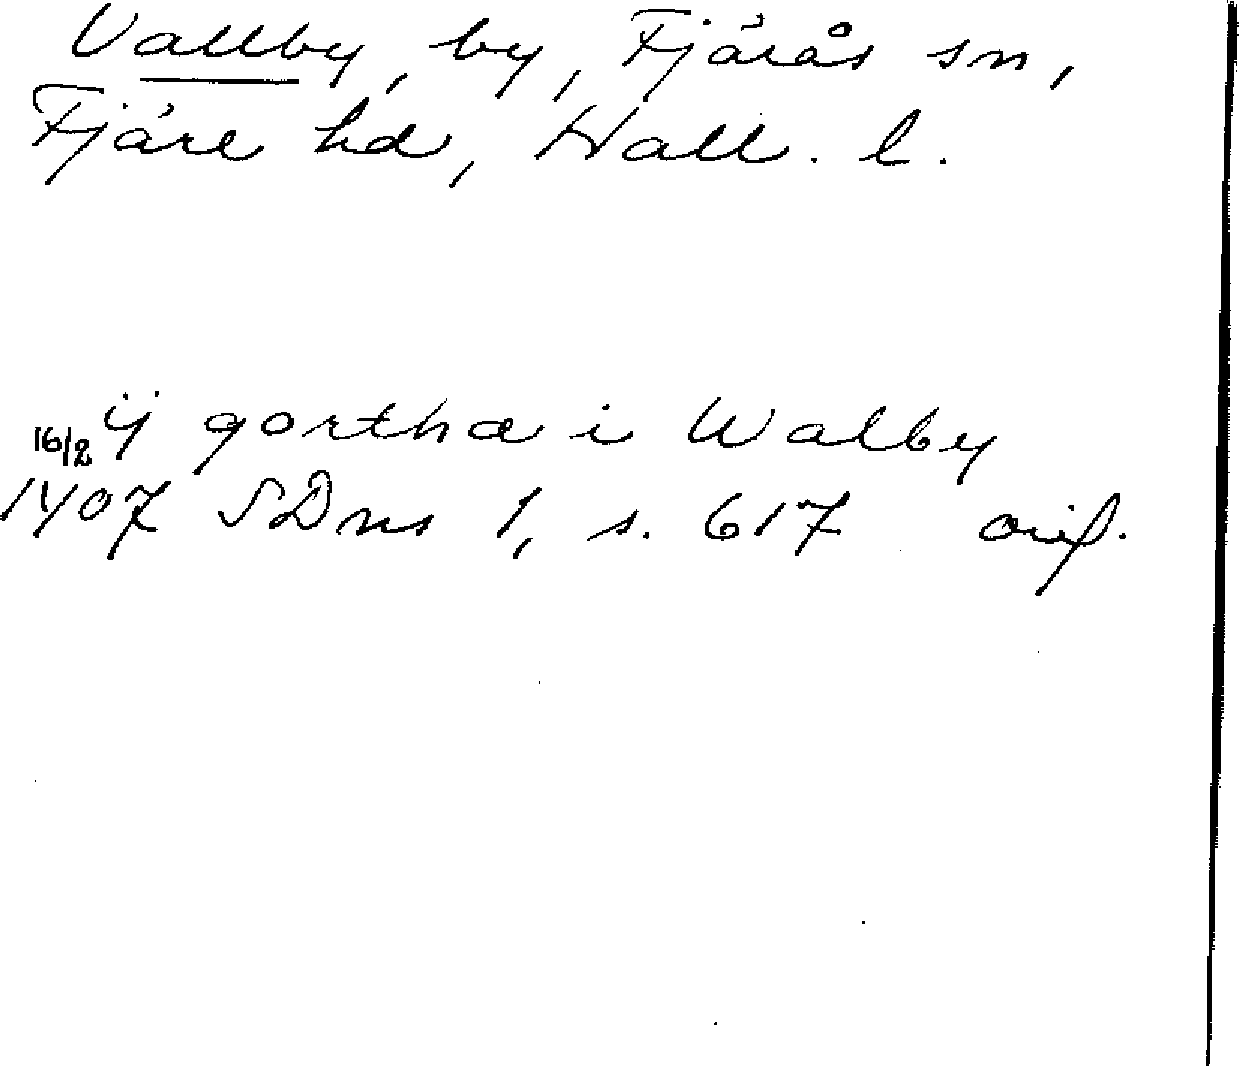 Vallby, by, Fjärås sn,
Fjäre hd, Hall. l.
ij gorthæ i Walby
16/2
1407 SDns 1, s. 617 orig.